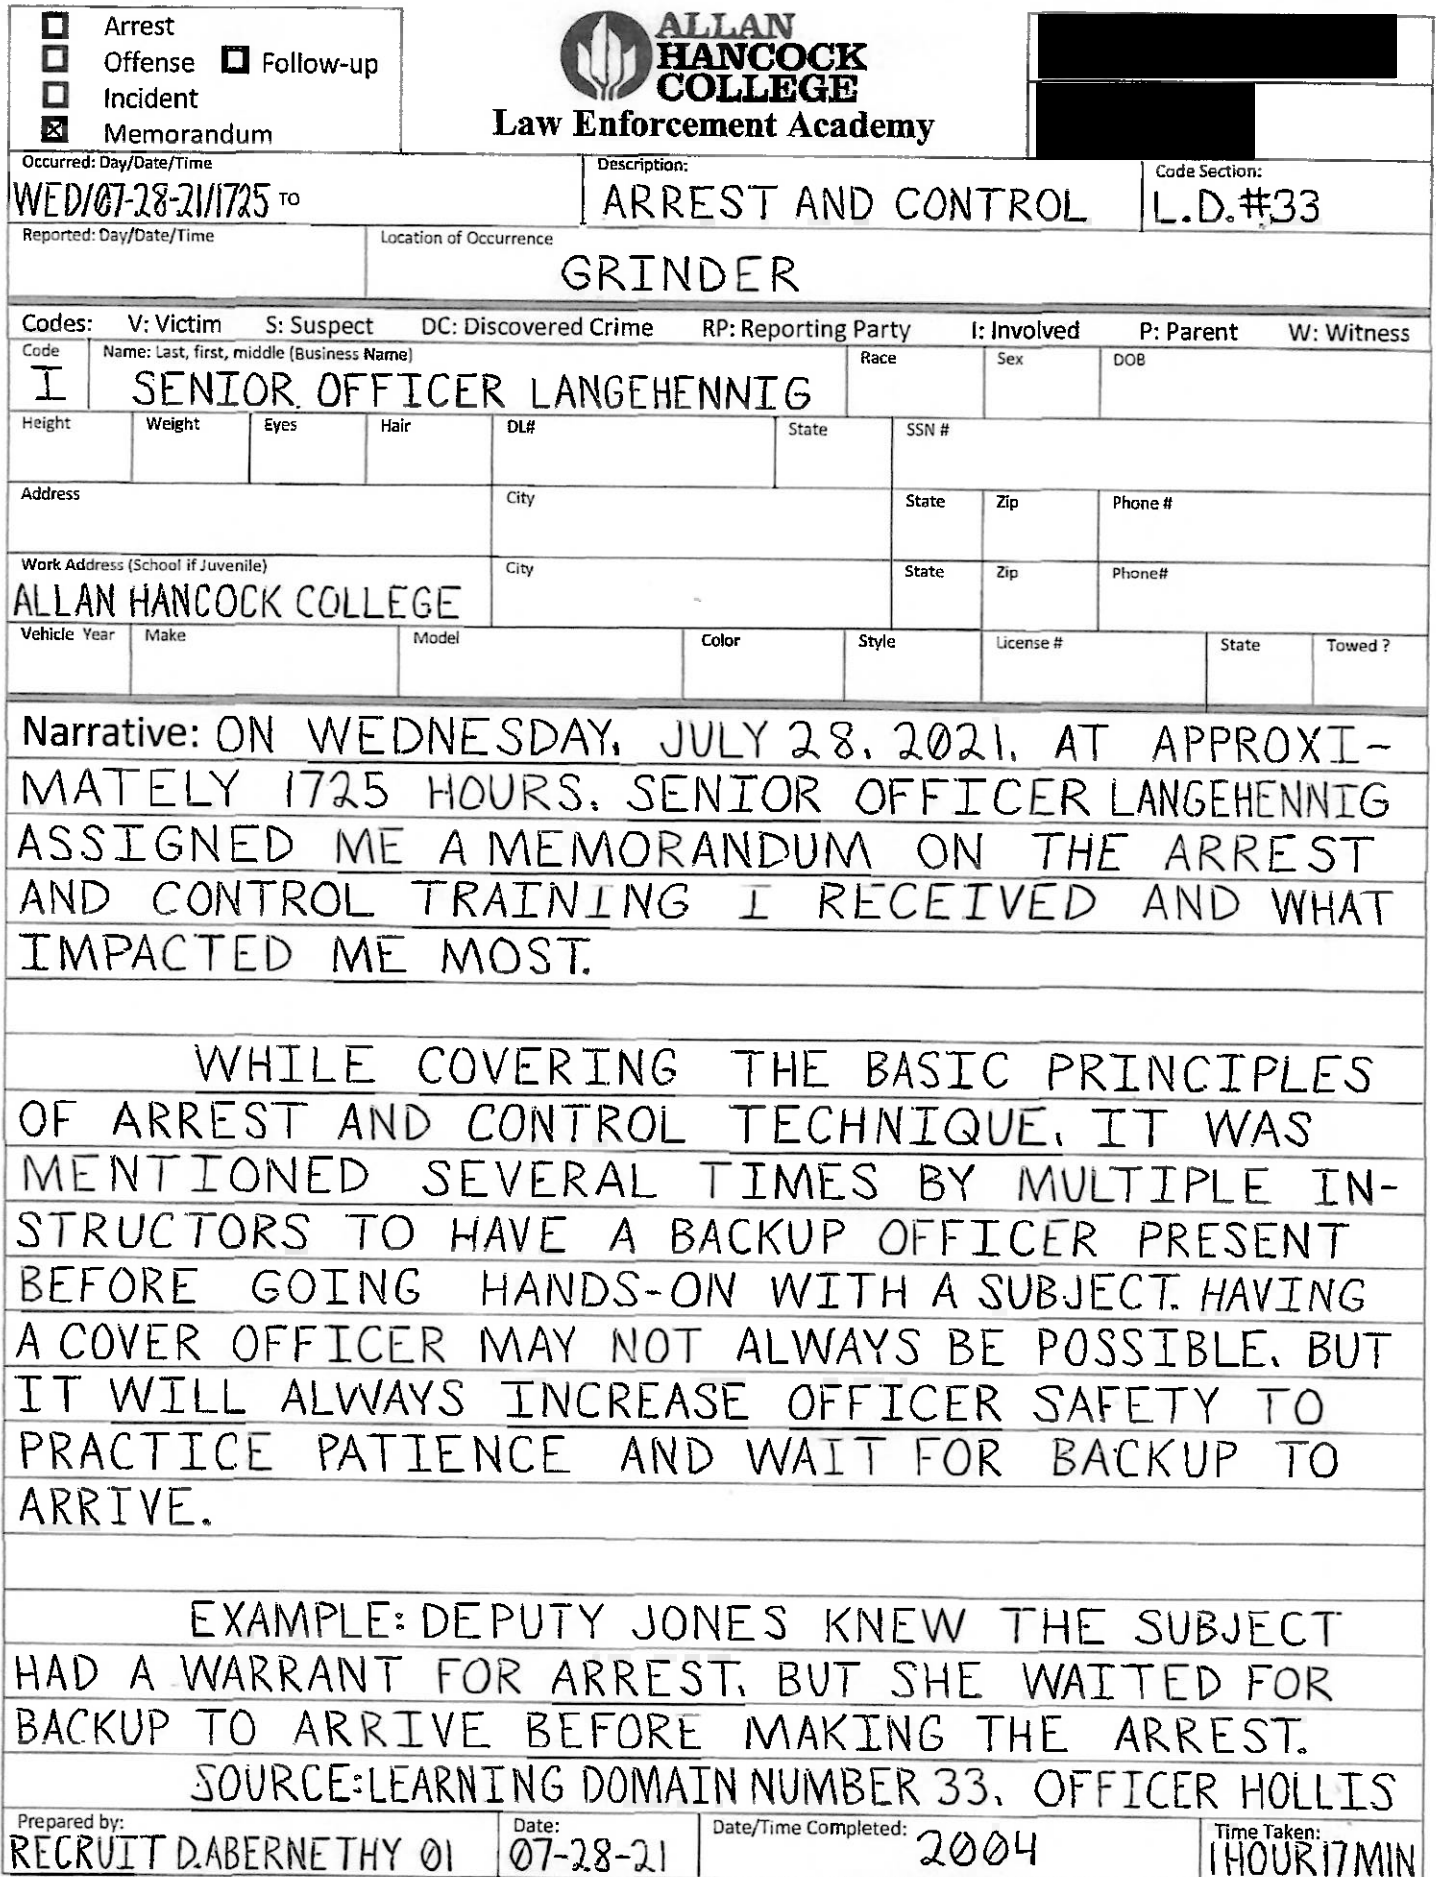 Arrest
Offense Follow-up
Incident
Memorandum
ALLAN
HANCOCK
COLLEGE
Law Enforcement Academy
Occurred: Day/Date/Time
WED/07-28-21/1725 TO
Description:
ARREST AND CONTROL
Code Section:
L.D.#33
Reported: Day/Date/Time
Location of Occurrence
GRINDER
Codes: V: Victim S: Suspect DC: Discovered Crime RP: Reporting Party I: Involved P: Parent W: Witness
Code Name: Last, first, middle (Business Name) Race Sex DOB
I SENIOR OFFICER LANGEHENNIG
Height Weight Eyes Hair DL# State SSN #
Address City State Zip Phone #
Work Address (School if Juvenile) City State Zip Phone#
ALLAN HANCOCK COLLEGE
Vehicle Year Make Model Color Style License # State Towed ?
Narrative: ON WEDNESDAY, JULY 28, 2021, AT APPROXI-
MATELY 1725 HOURS, SENIOR OFFICER LANGEHENNIG
ASSIGNED ME A MEMORANDUM ON THE ARREST
AND CONTROL TRAINING I RECEIVED AND WHAT
IMPACTED ME MOST.
WHILE COVERING THE BASIC PRINCIPLES
OF ARREST AND CONTROL TECHNIQUE, IT WAS
MENTIONED SEVERAL TIMES BY MULTIPLE IN-
STRUCTORS TO HAVE A BACKUP OFFICER PRESENT
BEFORE GOING HANDS-ON WITH A SUBJECT. HAVING
A COVER OFFICER MAY NOT ALWAYS BE POSSIBLE, BUT
IT WILL ALWAYS INCREASE OFFICER SAFETY TO
PRACTICE PATIENCE AND WAIT FOR BACKUP TO
ARRIVE.
EXAMPLE: DEPUTY JONES KNEW THE SUBJECT
HAD A WARRANT FOR ARREST, BUT SHE WAITED FOR
BACKUP TO ARRIVE BEFORE MAKING THE ARREST.
SOURCE: LEARNING DOMAIN NUMBER 33, OFFICER HOLLIS
Prepared by: Date: Date/Time Completed: Time Taken:
RECRUIT D. ABERNETHY 01 07-28-21 2004 1 HOUR 17 MIN